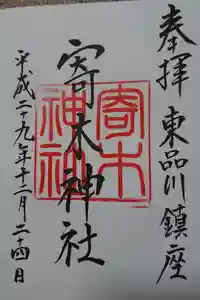 奉拝 東品川鎮座
寄木神社
寄木神社
平成二十九年十二月二十四日